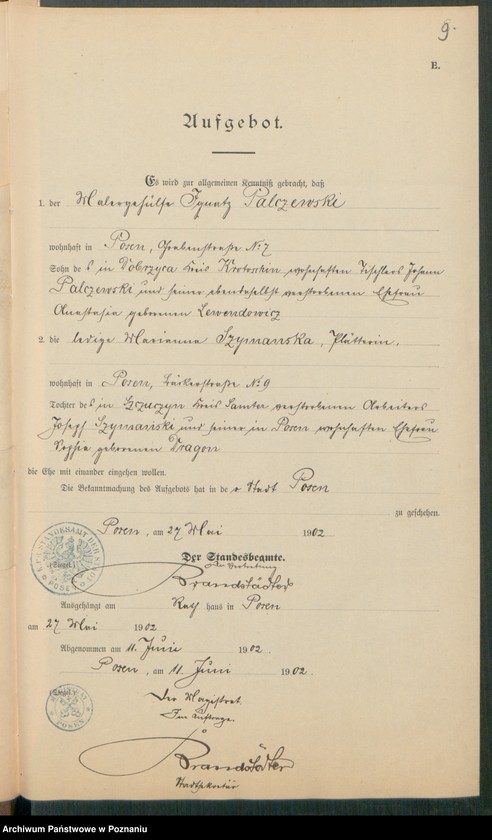 9.
E.
Aufgebot.
Es wird zur allgemeinen Kenntniß gebracht, daß
1. der Malergehülfe Ignatz Palczewski
wohnhaft in Posen, Grabenstraße No 7
Sohn des in Dobrzyca Kreis Krotoschin wohnhaften Tischlers Johann
Palczewski und seiner ebendaselbst verstorbenen Ehefrau
Anastasia geborenen Lewendowicz
2. die ledige Marianna Szymanska, Plätterin,
wohnhaft in Posen, Bäckerstraße No 9
Tochter des in Szczuczyn Kreis Samter verstorbenen Arbeiters
Josef Szymański und seiner in Posen wohnhaften Ehefrau
Sophia geborenen Dragon
die Ehe mit einander eingehen wollen.
Die Bekanntmachung des Aufgebots hat in der Stadt Posen
zu geschehen.
Posen, am 27 Mai 1902
Der Standesbeamte.
In Vertretung
Brandstädter
(Siegel.)
POSEN
Ausgehängt am Rathhaus in Posen
am 27 Mai 1902
Abgenommen am 11. Juni 1902.
Posen, am 11 Juni 1902.
(Siegel.)
POSEN
Der Magistrat.
Im Auftrage.
Brandstädter
Stadtsekretär
Archiwum Państwowe w Poznaniu